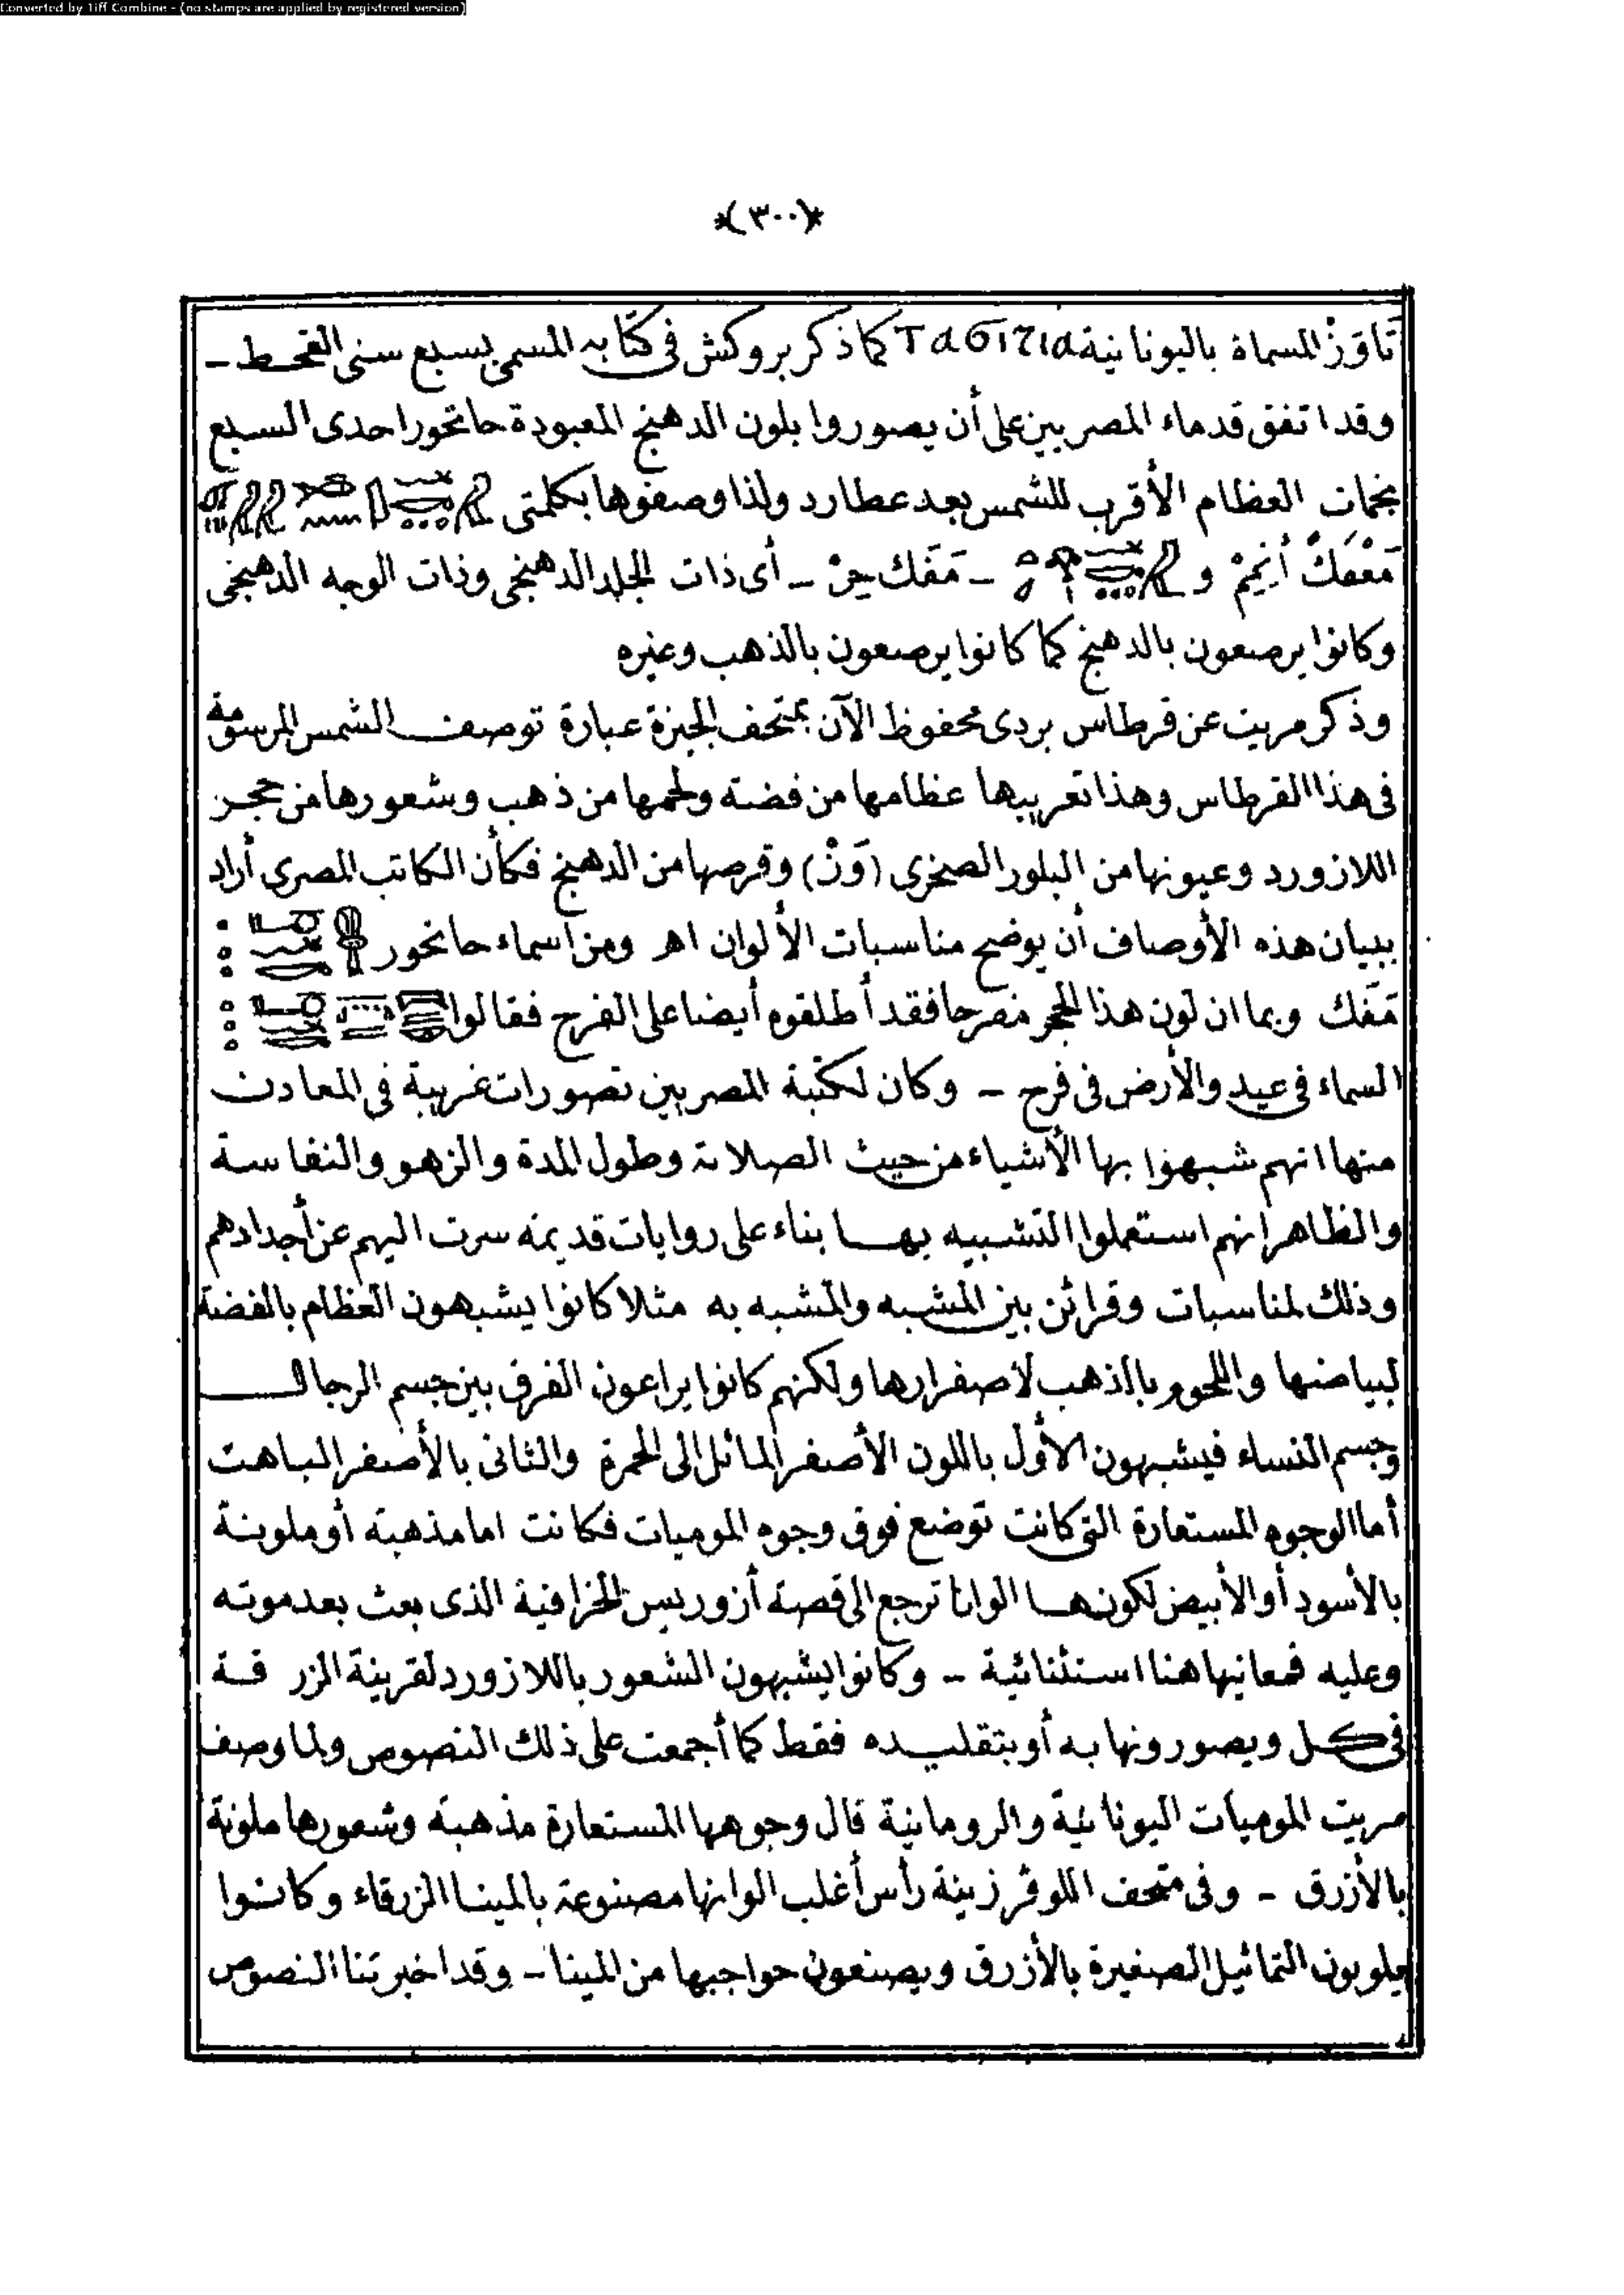 Converted by Tiff Combine - (no stamps are applied by registered version)
*(٣٠٠)*
تَاوَرْز المسماة باليونانية كما ذكر بروكش فى كتابه المسمى بسبع سنى القحط ـ
وقد اتفق قدماء المصريين على أن يصوروا بلون الدهنج المعبودة حاتحور احدى السبع
نجمات العظام الأقرب للشمس بعد عطارد ولذا وصفوها بكلمتى
مَفْكَ و ـ مَفَك حِرْ ـ أى ذات الجلد الدهنجى وذات الوجه الدهنجى
وكانوا يرصعون بالدهنج كما كانوا يرصعون بالذهب وغيره
وذكر مريت عن قرطاس بردى محفوظ الآن بمتحف الجيزة عبارة توصف الشمس المرسومة
فى هذا القرطاس وهذا تعريبها عظامها من فضة ولحمها من ذهب وشعورها من حجر
اللازورد وعيونها من البلور الصخرى (وَنْ) وقرصها من الدهنج فكأن الكاتب المصرى أراد
ببيان هذه الأوصاف أن يوضح مناسبات الألوان اهـ ومن أسماء حاتحور
مَفَك وبما ان لون هذا الحجر مفرحا فقد أطلقوه أيضا على الفرح فقالوا
السماء فى عيد والأرض فى فرح ـ وكان لكتبة المصريين تصورات غريبة فى المعادن
منها انهم شبهوا بها الأشياء من حيث الصلابة وطول المدة والزهو والنفاسة
والظاهر انهم استعملوا التشبيه بها بناء على روايات قديمه سرت اليهم عن أجدادهم
وذلك لمناسبات وقرائن بين المشبه والمشبه به مثلا كانوا يشبهون العظام بالفضة
لبياضها واللحوم بالذهب لاصفرارها ولكنهم كانوا يراعون الفرق بين جسم الرجال
وجسم النساء فيشبهون الأول باللون الأصفر المائل الى الحمرة والثانى بالأصفر الباهت
أما الوجوه المستعارة التى كانت توضع فوق وجوه الموميات فكانت اما مذهبة أو ملونة
بالأسود أو الأبيض لكونها الوانا ترجع الى قصة أزوريس الخرافية الذى بعث بعد موته
وعليه فمعانيها هنا استثنائية ـ وكانوا يشبهون الشعور باللازورد لقرينة الزرقة
فى كل ويصورونها به أو بتقليده فقط كما أجمعت على ذلك النصوص ولما وصف
مريت الموميات اليونانية والرومانية قال وجوهها المستعارة مذهبة وشعورها ملونة
بالأزرق ـ وفى متحف اللوڤر زينة رأس أغلب الوانها مصنوعة بالمينا الزرقاء وكانوا
يلوبون التماثيل الصغيرة بالأزرق ويصنعون حواجبها من المينا ـ وقد اخبرتنا النصوص